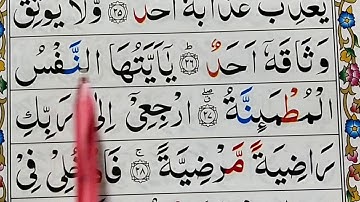 يُعَذِّبُ عَذَابَهٗۤ اَحَدٌ ۙ‏﴿۲۵﴾ وَّلَا يُوْثِقُ
وَثَاقَهٗۤ اَحَدٌ ؕ‏﴿۲۶﴾ يٰۤاَيَّتُهَا النَّفْسُ
الْمُطْمَئِنَّةُ ۖ‏﴿۲۷﴾ ارْجِعِىْۤ اِلٰى رَبِّكِ
رَاضِيَةً مَّرْضِيَّةً ۚ‏﴿۲۸﴾ فَادْخُلِىْ فِىْ